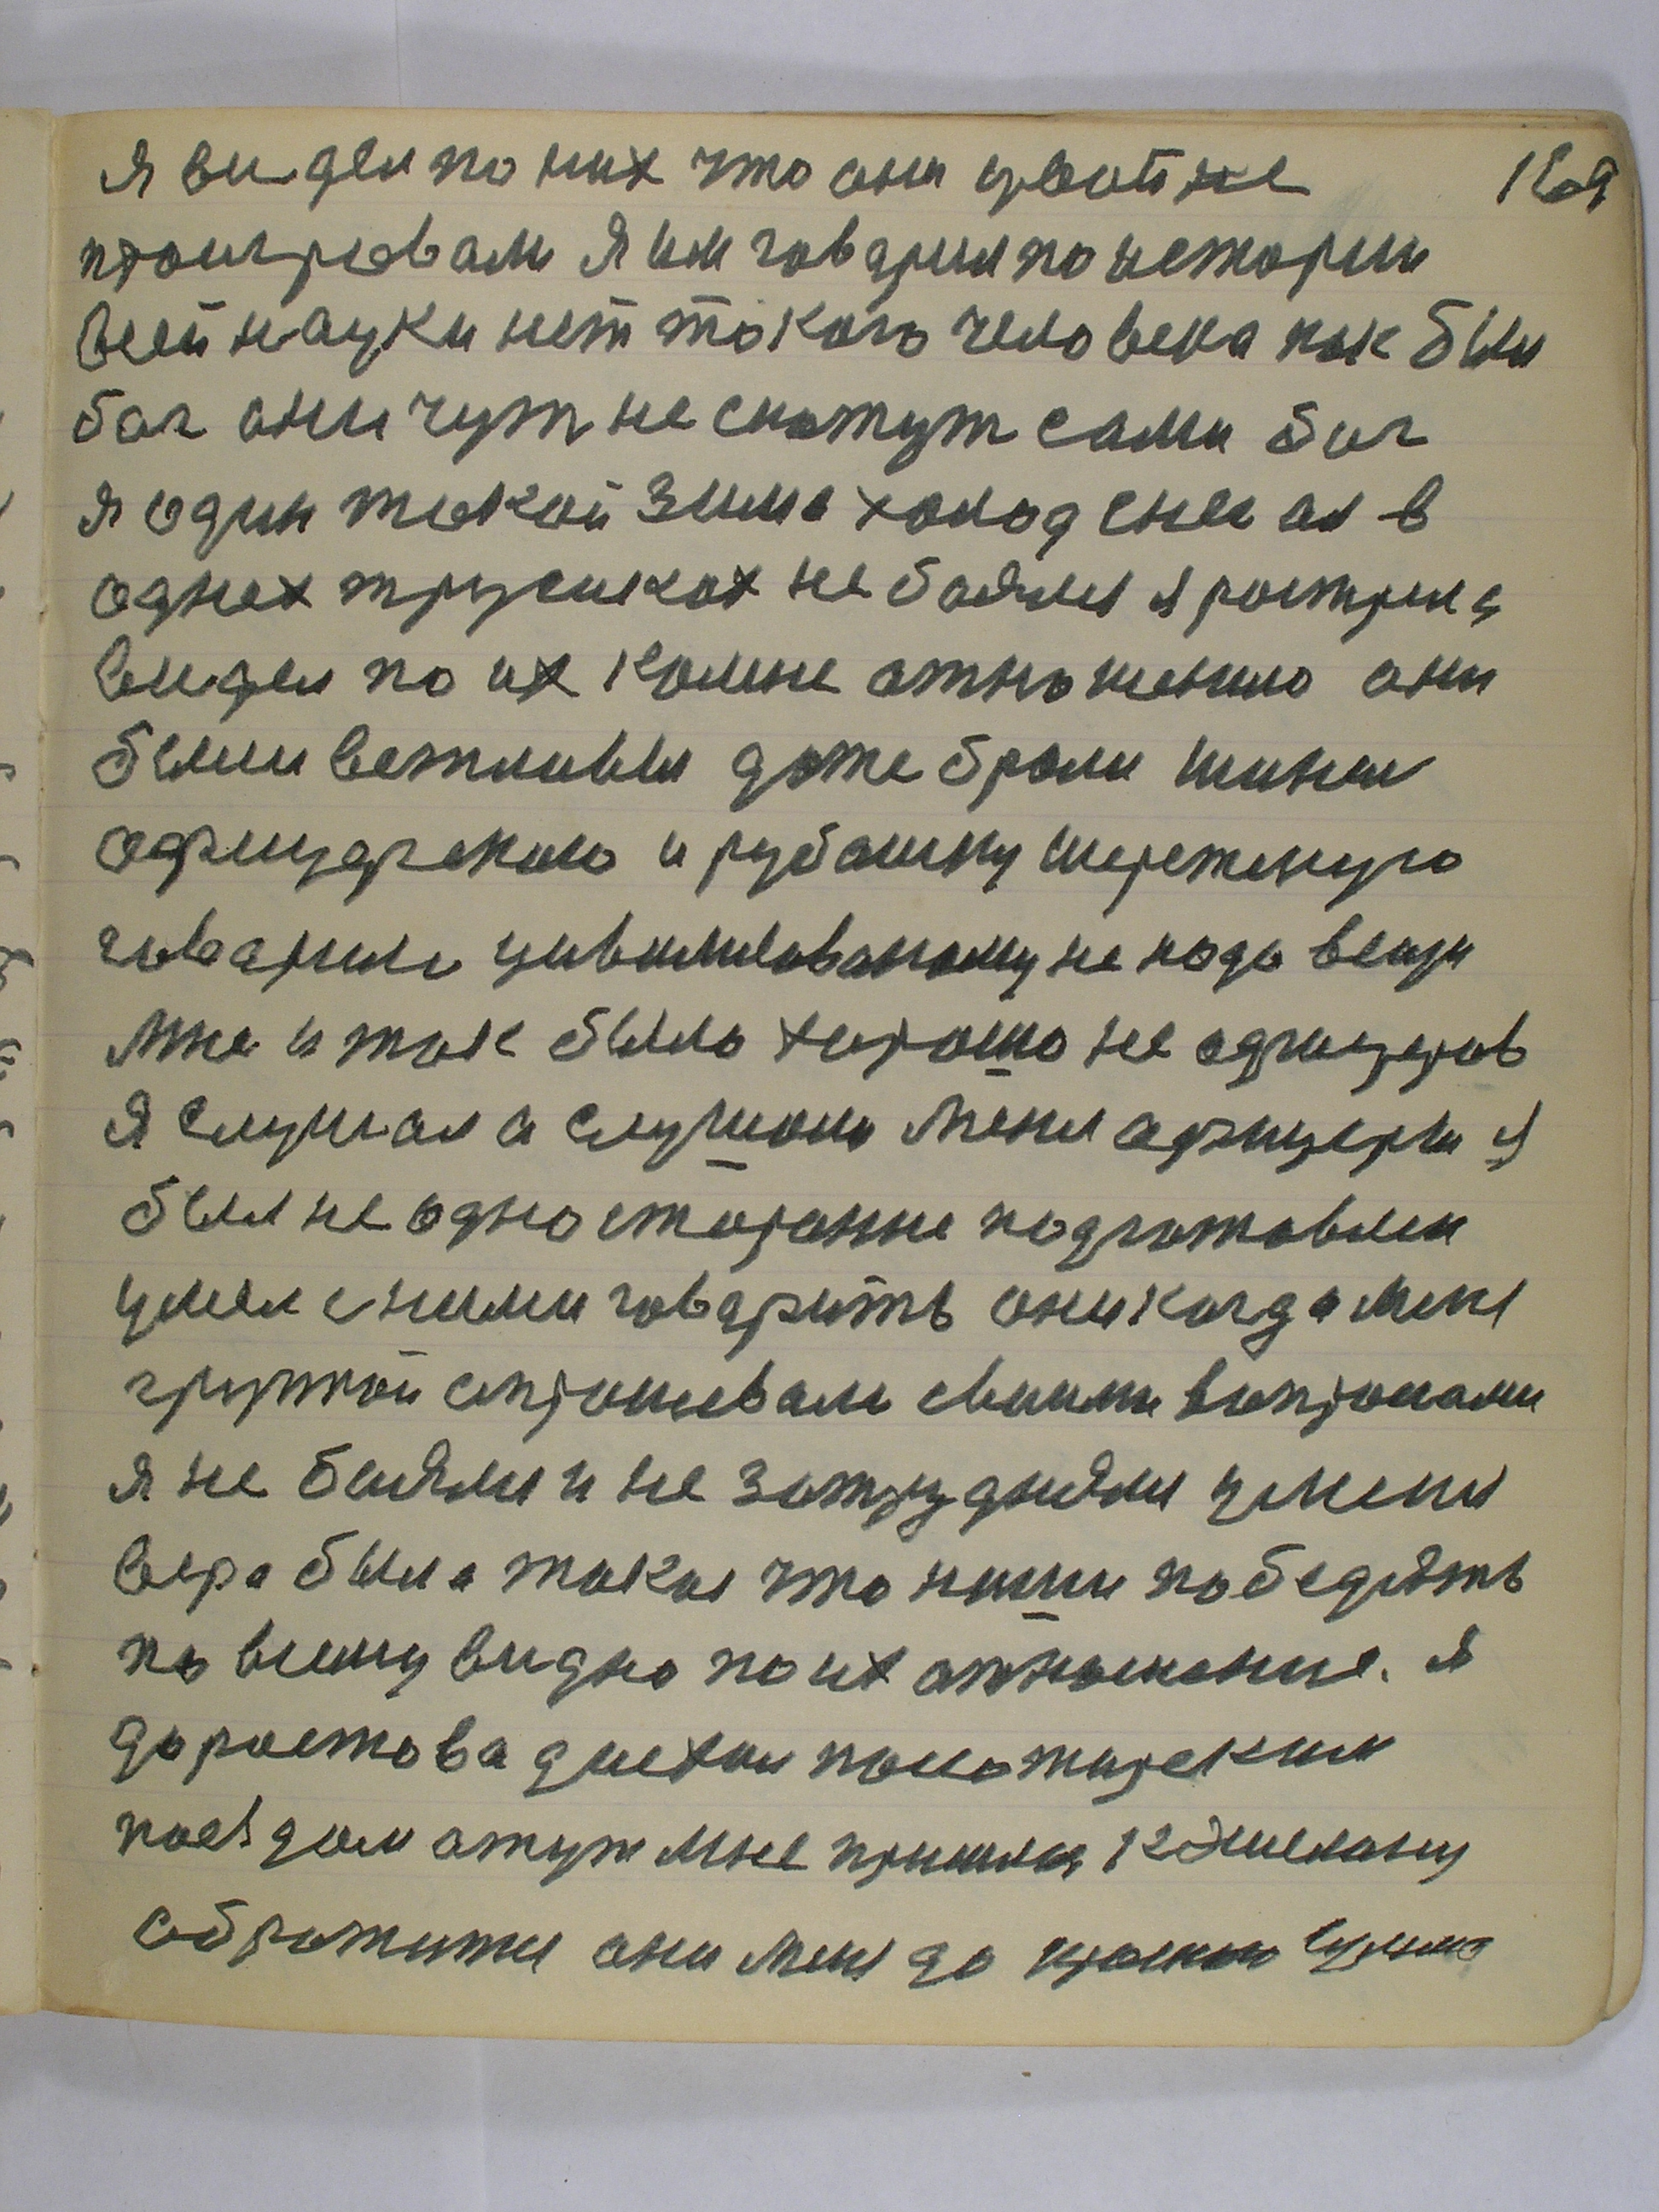 я видел по них что они цвойне 169
проигровали я им говарил по истории
всей науки нет такого человека как был
бог они чуть не скажут сами бог
я один такой зима холод снег ая в
однех трусиках не баялся я рострела
видел по их комне атношению они
были вежливы даже брали шинел
афицарскаю и рубашку шерстеную
говарили цивилизованому не надо вещи
мне и так было хорошо не афицеров
я слушал а слушали меня афицеры я
был не одностаронне подготовлен
умел сними говарить они когда меня
групой спрошевали своими вопросами
я не баялся и не затруднялся у меня
вера была такая что наши победять
по всему видно по их атношение. я
до ростова доехал посажирским
поездом атут мне пришлос к жилезну
обратится они меня до